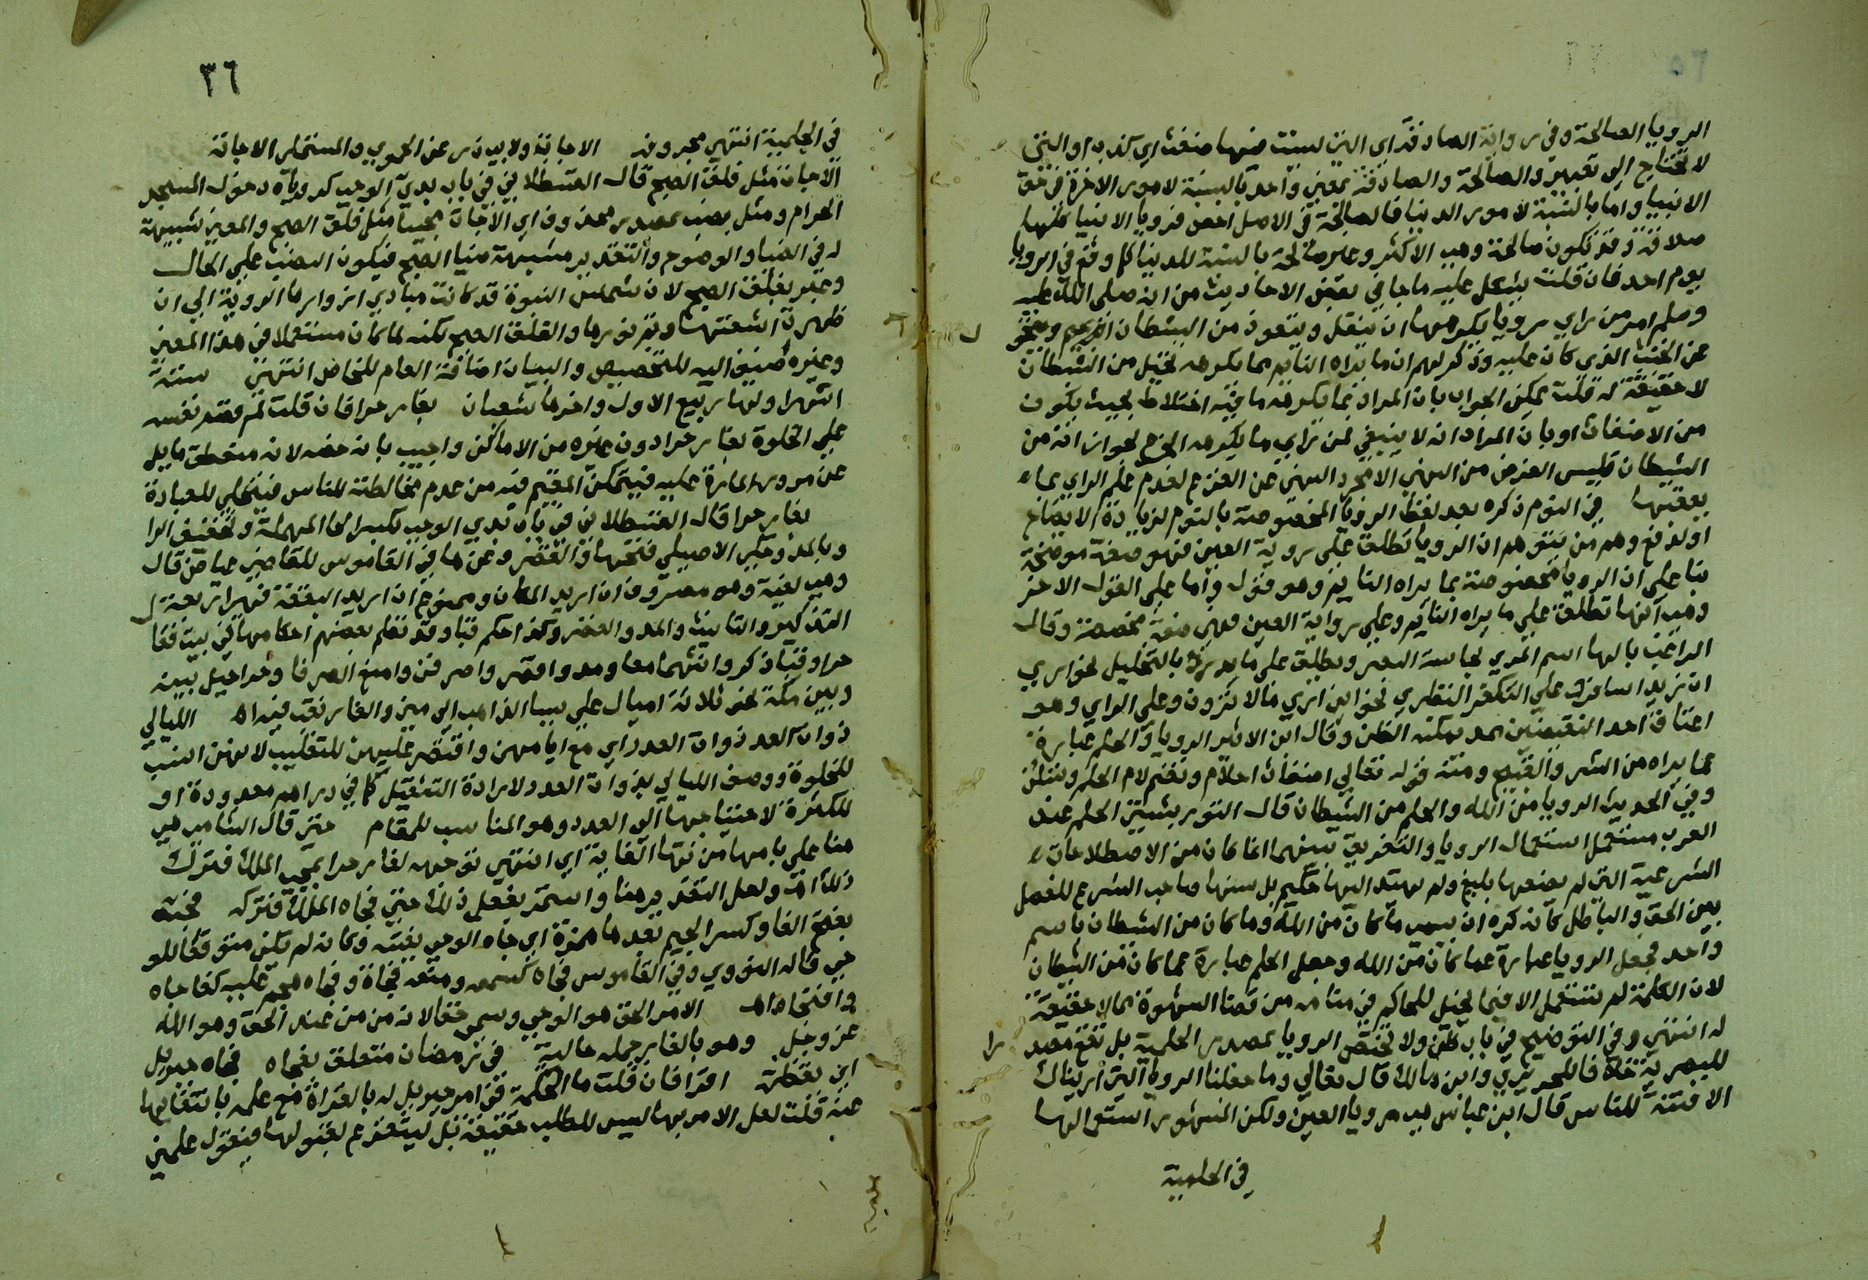 الرويا الصالحة وفي رواية الصادقة اي التي ليست ضغث اي كذب او التي
لا تحتاج الى تعبير والصالحة والصادقة بمعنى واحد بالنسبة لامور الاخرة في حق
الانبيا واما بالنسبة لامور الدنيا فالصالحة في الاصل اخص فرويا الانبيا كلها
صادقة وقد تكون صالحة وهي الاكثر وغير صالحة بالنسبة للدنيا كما وقع في الرويا
يوم احد فان قلت يشكل عليه ما جا في بعض الاحاديث من انه صلى الله عليه
وسلم امر من راي رويا يكرهها ان يتفل ويتعوذ من الشيطان الرجيم
عن الجنب الذي كان عليه وذكر لهم ان ما يراه النايم مما يكرهه تخيل من الشيطان
لا حقيقة له قلت يمكن الجواب بان المراد بما يكرهه ما فيه اختلاط بحيث يكون
من الاضغاث او بان المراد انه لا ينبغي لمن راي ما يكرهه لجواز انه من
الشيطان فليس الغرض من النهي الا مجرد النهي عن الفزع لعدم علم الراي بما
يعقبها في النوم ذكره بعد لفظ الرويا المخصوصة بالنوم لزيادة الايضاح
او لدفع وهم من يتوهم ان الرويا تطلق على روية العين فهو صفة موضحة
بنا على ان الرويا مخصوصة بما يراه النايم وهو قول واما على القول الاخر
وهو انها تطلق على ما يراه النايم وعلى رواية العين فهي صفة مخصصة وقال
الراغب بالها اسم المري بحاسة البصر ويطلق على ما يدرك بالتخييل نحو اري
ان زيدا سافر وعلى التفكر النظري نحو اني اري ما لا ترون وعلى الراي وهو
اعتقاد احد النقيضين بعد الظن وقال ابن الاثير الرويا والحلم عبارة
عما يراه من الشر والقبيح ومنه قوله تعالي اضغاث احلام وتضم لام الحلم وتسكن
وفي الحديث الرويا من الله والحلم من الشيطان قال التوربشتي الحلم عند
العرب مستعمل استعمال الرويا والتفريق بينهما انما كان من الاصطلاحات
الشرعية التي لم يضعها بليغ ولم يهتد اليها حكيم بل سنها صاحب الشرع للفصل
بين الحق والباطل كانه كره ان يسمي ما كان من الله وما كان من الشيطان باسم
واحد فجعل الرويا عبارة عما كان من الله وجعل الحلم عبارة عما كان من الشيطان
لان الكلمة لم تستعمل الا فيما يخيل للحالم في منامه من قضا الشهوة مما لا حقيقة
له انتهى وفي التوضيح في باب ظن ولا تختص الرويا بمصدر الحلمية بل تقع مصدر را
للبصرية خلافا للحريري وابن مالك قال تعالي وما جعلنا الرويا التي اريناك
الا فتنة للناس قال ابن عباس هي رويا العين ولكن المشهور استعمالها
في الحلمية
٣٦
في الحلمية انتهى بحروفه الاجابة ولابي ذر عن الحموي والمستملي الاجات
الا جات مثل فلق الصبح قال القسطلاني في باب بدي الوحي كروياه دخول المسجد
الحرام ومثل نصب بمصدر محذوف اي الا جات مجيئا مثل فلق الصبح والمعني شبيهة
له في الضيا والوضوح والتقدير مشبهة ضيا الصبح فيكون النصب على الحال
وعبر بفلق الصبح لان شمس النبوة قد كانت مبادي انوارها الروية الى ان
ظهرت اشعتها وتم نورها والفلق الصبح لكنه لما كان مستعملا في هذا المعني
وغيره اضيف اليه للتخصيص والبيان اضافة العام للخاص انتهى ستة
اشهر اولها ربيع الاول واخرها شعبان بغار حرا فان قلت لم قصر نفسه
على الخلوة بغار حرا دون غيره من الاماكن واجيب بانه خصه لانه منعطف مايل
عن مرور المارة عليه فيتمكن المقيم فيه من عدم مخالطته للناس فيتخلي للعبادة
بغار حرا قال القسطلاني في باب بدي الوحي بكسر الحا المهملة وتخفيف الرا
وبالمد وحكي الاصيلي فتحها والقصر وعزاها في القاموس للقاضي عياض قال
وهي لغية وهو مصروف ان اريد المكان وممنوع ان اريد البقعة فهي اربعة
التذكير والتانيث والمد والقصر وكذا حكم قبا وقد نظم بعضهم احكامها في بيت فقال
حرا وقبا ذكر وانثهما معا ومد واقصر واصرفن وامنع الصرفا وحرا جبل بينه
وبين مكة نحو ثلاثة اميال على يسار الذاهب الي منى والغار نقب فيه اه الليالي
ذوات العدد ذوات العدد اي مع ايامهن واقتصر عليهن للتغليب لانهن انسب
للخلوة ووصف الليالي بذوات العدد لارادة التقليل كما في دراهم معدودة او
للكثرة لاحتياجها الى العدد وهو المناسب للمقام حتى قال الشامي هي
هنا على بابها من انتها الغاية اي انتهى توجهه لغار حرا بمجي الملك فترك
ذلك اه ولعل التقدير هنا واستمر يفعل ذلك حتى فجاه الملك فتركه فجئه
بفتح الفا وكسر الجيم بعدها همزة اي جاه الوحي بغتة وكانه لم يكن متوقعا للو
حي قاله النووي وفي القاموس فجاه كسمعه ومنعه فجاة وفجاه هجم عليه كفاجاه
وافتجاه اه الامر الحق هو الوحي وسمي حقا لانه من عند الحق وهو الله
عز وجل وهو بالغار جملة حالية في رمضان متعلق بفجاه فجاه جبريل
اي يقظة اقرا فان قلت ما الحكمة في امر جبريل له بالقراة مع علمه بانتفايها
عنه قلت لعل الامر بها ليس للطلب حقيقة بل ليتفرع لقبولها فيقول علمني